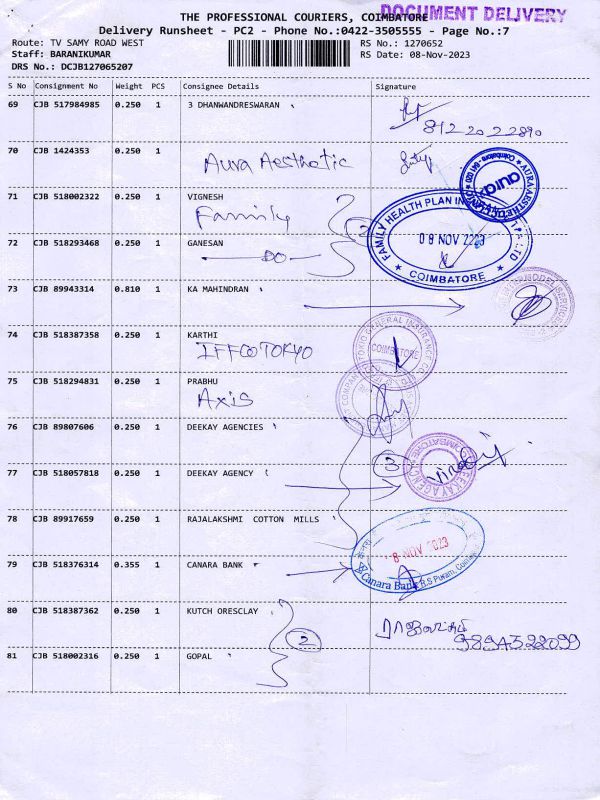 THE PROFESSIONAL COURIERS, COIMBATORE
DOCUMENT DELIVERY
Delivery Runsheet - PC2 - Phone No.:0422-3505555 - Page No.:7
Route: TV SAMY ROAD WEST
RS No.: 1270652
Staff: BARANIKUMAR
RS Date: 08-Nov-2023
DRS No.: DCJB127065207
S No Consignment No Weight PCS Consignee Details Signature
69 CJB 517984985 0.250 1 3 DHANWANDRESWARAN
70 CJB 1424353 0.250 1
Aura Aesthetic
71 CJB 518002322 0.250 1 VIGNESH
Family
FAMILY HEALTH PLAN
08 NOV 2023
COIMBATORE
72 CJB 518293468 0.250 1 GANESAN
DO
73 CJB 89943314 0.810 1 KA MAHINDRAN
74 CJB 518387358 0.250 1 KARTHI
IFFCO TOKYO
GENERAL INSURANCE
COIMBATORE
75 CJB 518294831 0.250 1 PRABHU
Axis
76 CJB 89807606 0.250 1 DEEKAY AGENCIES
3
77 CJB 518057818 0.250 1 DEEKAY AGENCY
78 CJB 89917659 0.250 1 RAJALAKSHMI COTTON MILLS
8 NOV 2023
79 CJB 518376314 0.355 1 CANARA BANK
Canara Bank R.S Puram,
80 CJB 518387362 0.250 1 KUTCH ORESCLAY
2
9894322099
81 CJB 518002316 0.250 1 GOPAL